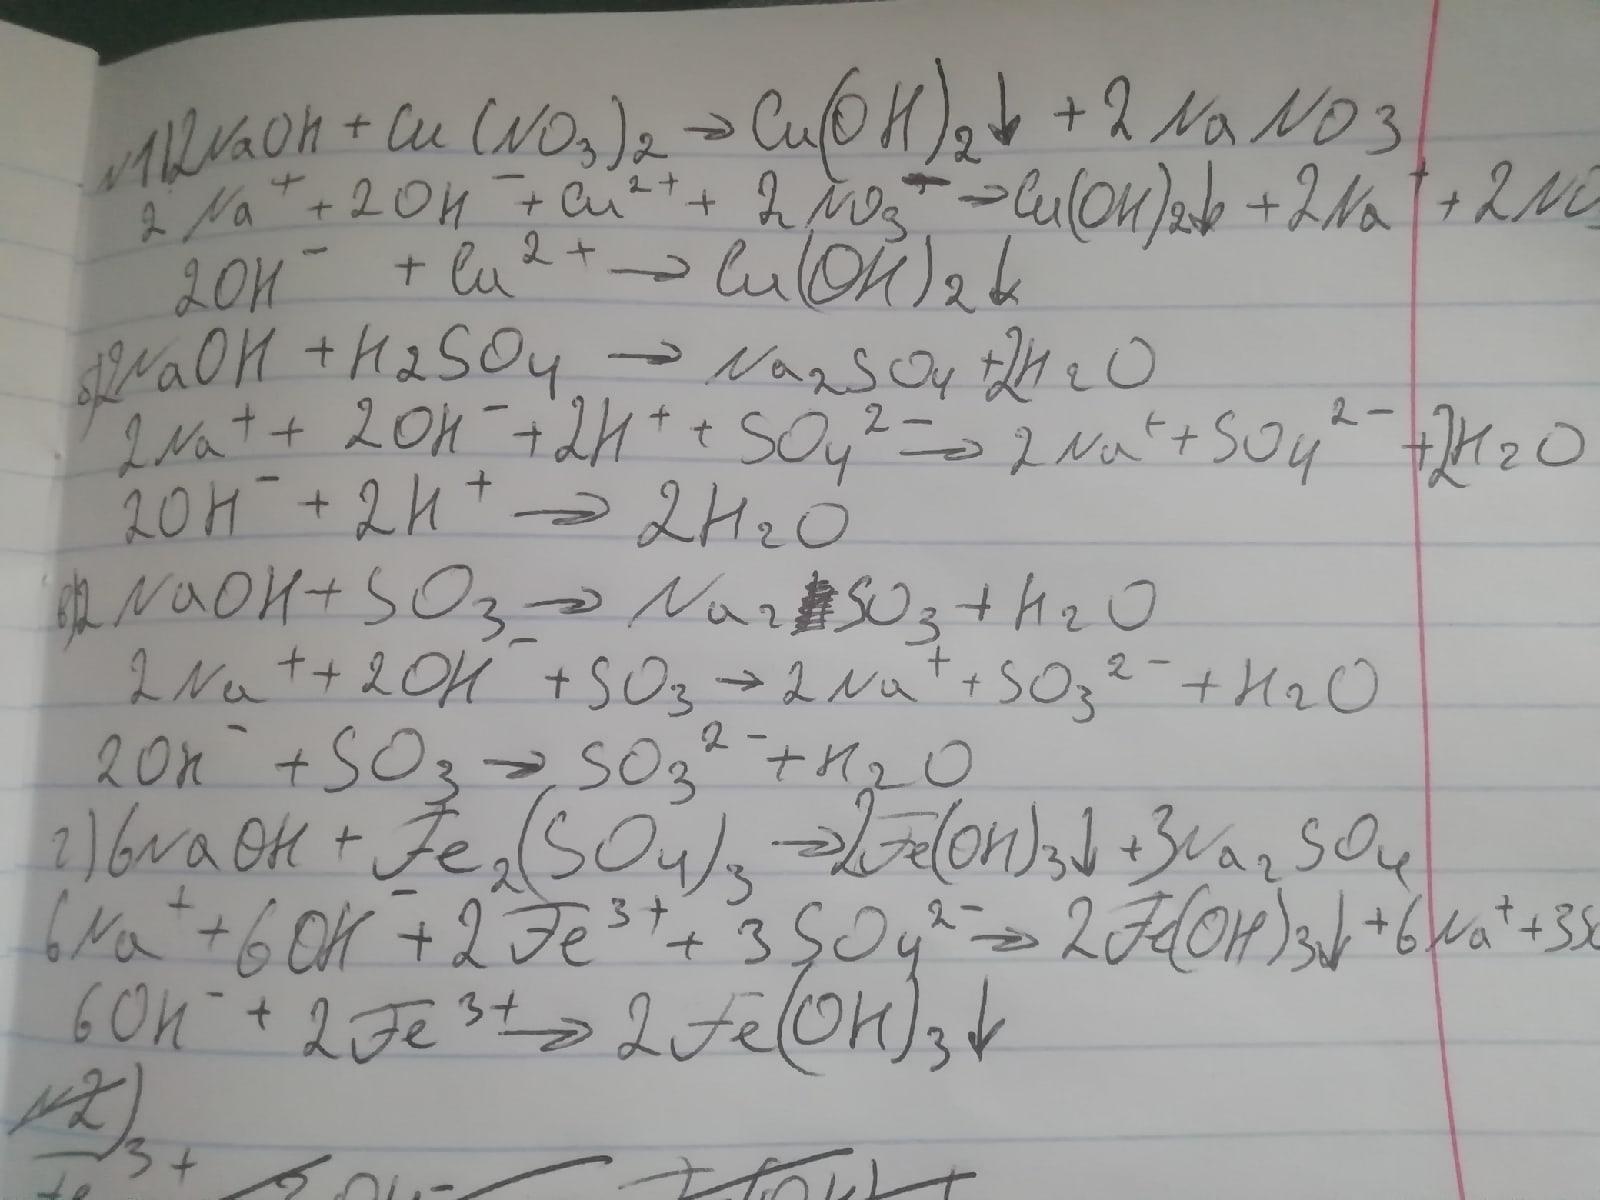 №1) 2NaOH + Cu(NO₃)₂ → Cu(OH)₂↓ + 2NaNO₃
2Na⁺ + 2OH⁻ + Cu²⁺ + 2NO₃⁻ → Cu(OH)₂↓ + 2Na⁺ + 2NO₃
2OH⁻ + Cu²⁺ → Cu(OH)₂↓
б) 2NaOH + H₂SO₄ → Na₂SO₄ + 2H₂O
2Na⁺ + 2OH⁻ + 2H⁺ + SO₄²⁻ → 2Na⁺ + SO₄²⁻ + 2H₂O
2OH⁻ + 2H⁺ → 2H₂O
в) 2NaOH + SO₃ → Na₂SO₃ + H₂O
2Na⁺ + 2OH⁻ + SO₃ → 2Na⁺ + SO₃²⁻ + H₂O
2OH⁻ + SO₃ → SO₃²⁻ + H₂O
г) 6NaOH + Fe₂(SO₄)₃ → 2Fe(OH)₃↓ + 3Na₂SO₄
6Na⁺ + 6OH⁻ + 2Fe³⁺ + 3SO₄²⁻ → 2Fe(OH)₃↓ + 6Na⁺ + 3SO
6OH⁻ + 2Fe³⁺ → 2Fe(OH)₃↓
№2)
3+